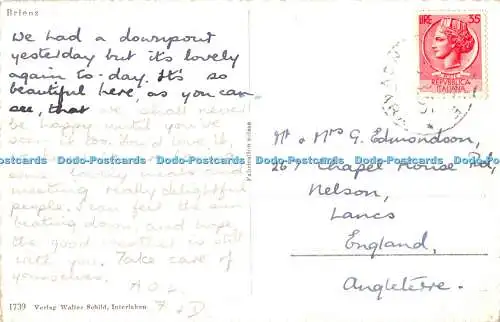 Brienz
We had a downpour
yesterday but it's lovely
again to-day. It's so
beautiful here, as you can
see, that we shall never
be happy until you've
seen it too. You'd love it,
meeting really delightful
people. I can feel the sun
beating down, and hope
the good weather is still
with you. Take care of
yourselves.
1739 Verlag Walter Schild, Interlaken
Fabrication suisse
LIRE 35
REPVBBLICA
ITALIANA
Mr & Mrs G. Edmondson,
267 Chapel House Rd,
Nelson,
Lancs
England,
Angleterre.
Dodo-Postcards Dodo-Postcards Dodo-Postcards Dodo-Postcards Dodo-Postcards